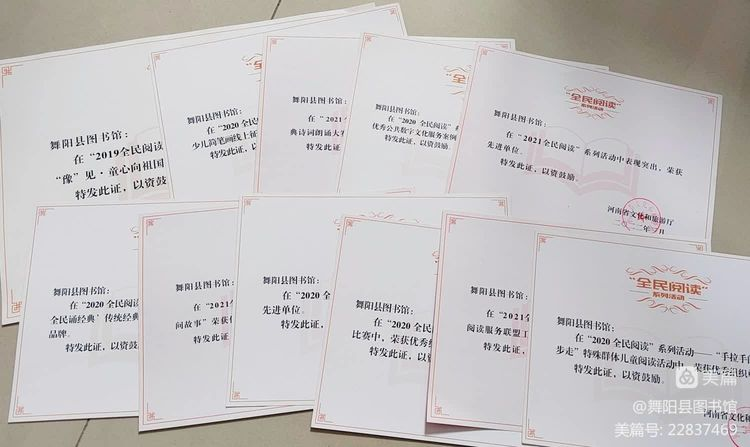 舞阳县图书馆：
在“2019全民阅读
“像”见·童心向祖国
特发此证，以资鼓
舞阳县图书馆：
在“2020 全民阅
少儿简笔画线上征
特发此证，以资
舞阳县图书馆：
在“2021
典诗词朗诵大
特发此证
舞阳县图书馆：
在“2020 全民阅读”系
优秀公共数字文化服务案例
特发此证，以资鼓励。
“全民阅读”
系列活动
舞阳县图书馆：
在“2021全民阅读”系列活动中表现突出，荣获
先进单位。
特发此证，以资鼓励。
河南省文化和旅游厅
二〇二二年一月
舞阳县图书馆：
在“2020 全民阅读
全民诵经典’传统经典
品牌。
特发此证，以资鼓
舞阳县图书馆：
在“2021全
间故事”荣获优
特发此证，
舞阳县图书馆：
在“2020 全
先进单位。
特发此证，
舞阳县图书馆：
在“2020 全民
比赛中，荣获优秀组
特发此证，以资
舞阳县图书馆：
在“2021
阅读服务联盟工
特发此证
“全民阅读”
系列活动
舞阳县图书馆：
在“2020 全民阅读”系列活动——“手拉手
步走”特殊群体儿童阅读活动中，荣获优秀组织
特发此证，以资鼓励。
河南省文化和
美篇
@舞阳县图书馆
美篇号: 22837469